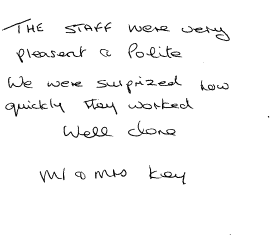 THE STAFF were very
pleasent & Polite
We were surprized how
quickly they worked
Well done
Mr & Mrs Key